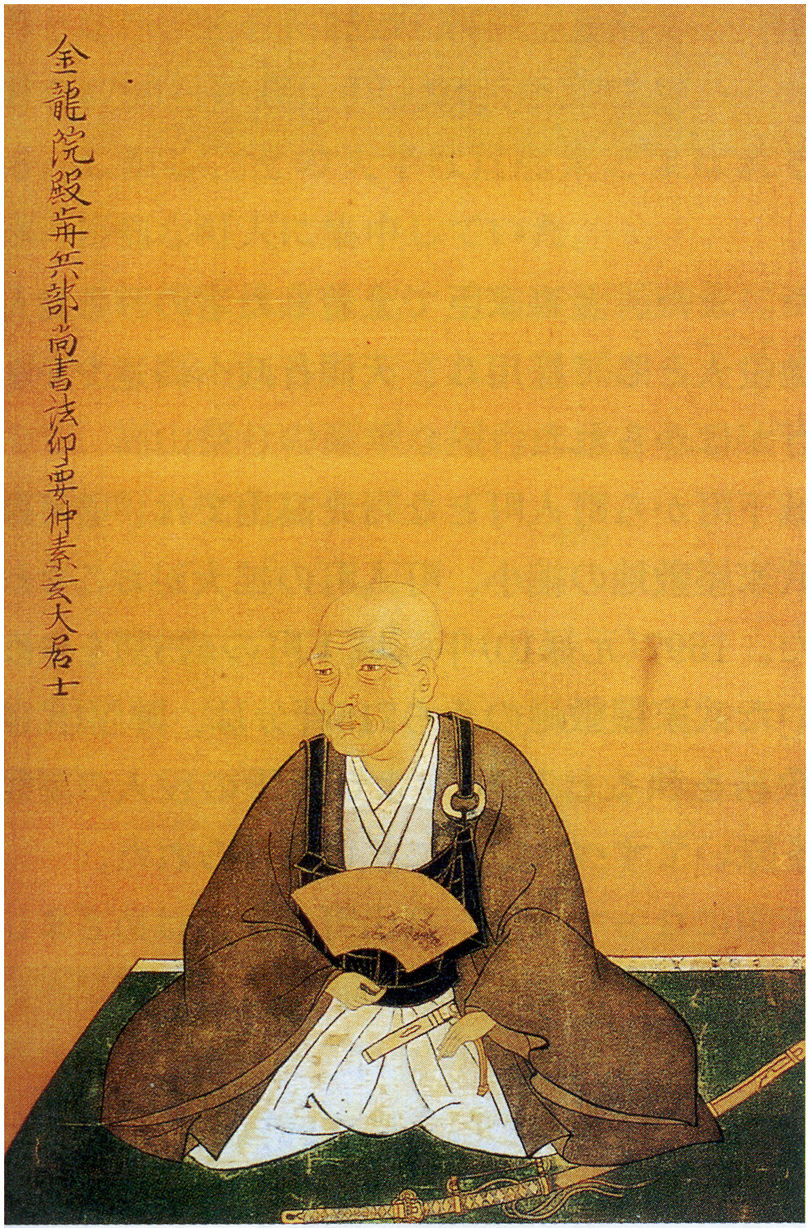 金龍院殿歬兵部尚書法印要仲素玄大居士